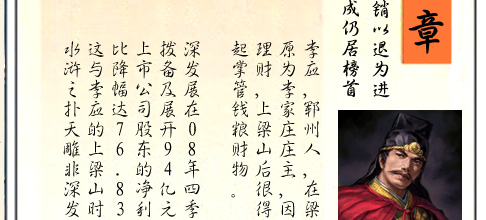 章
销以退为进
成仍居榜首
李应，郓州人，在梁
原为李家庄庄主，因
理财，上梁山后很得
起掌管钱粮财物。
深发展在08年四季
拨备及展开94亿元
上市公司股东的净利
比降幅达76.83
这与李应的上梁山时
水浒之扑天雕非深发